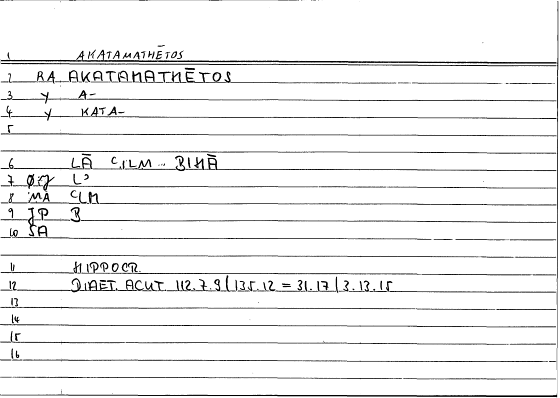 1 AKATAMATHĒTOS
2 RA AKATAMATHĒTOS
3 Y A-
4 Y KATA-
5
6 LĀ ʿILM - BIHĀ
7 Ø:J Lʾ
8 MA ʿLM
9 JP B
10 SA
11 HIPPOCR.
12 DIAET. ACUT 112.7.9 | 135.12 = 31.17 | 3.13.15
13
14
15
16